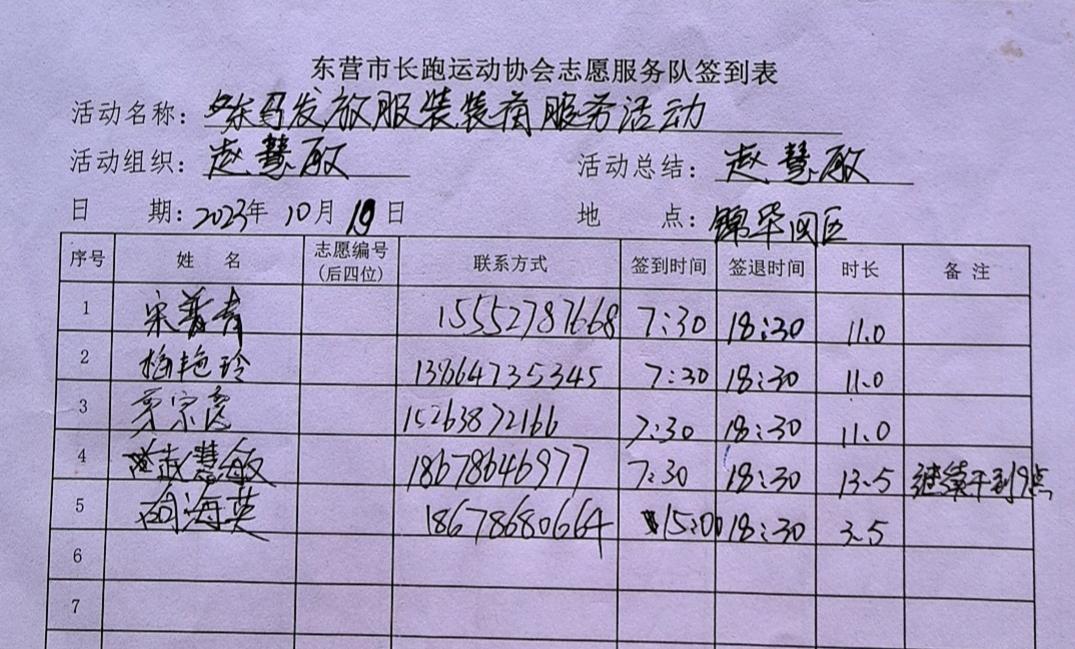 东营市长跑运动协会志愿服务队签到表
活动名称: 东马发放服装装备服务活动
活动组织: 赵慧敏 活动总结: 赵慧敏
日 期: 2023年 10月 19日 地 点: 锦华园区
序号 姓 名 志愿编号(后四位) 联系方式 签到时间 签退时间 时长 备 注
1 宋普青 15552787668 7:30 18:30 11.0
2 杨艳玲 13864735345 7:30 18:30 11.0
3 宗 15263872166 7:30 18:30 11.0
4 赵慧敏 18678646977 7:30 18:30 13.5 继续干到9点
5 海英 18678680664 15:00 18:30 3.5
6
7